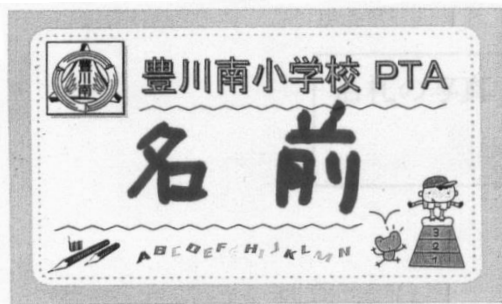 豊川南
豊川南小学校 PTA
名前
3
2
1
ABCDEFGHIJKLMN